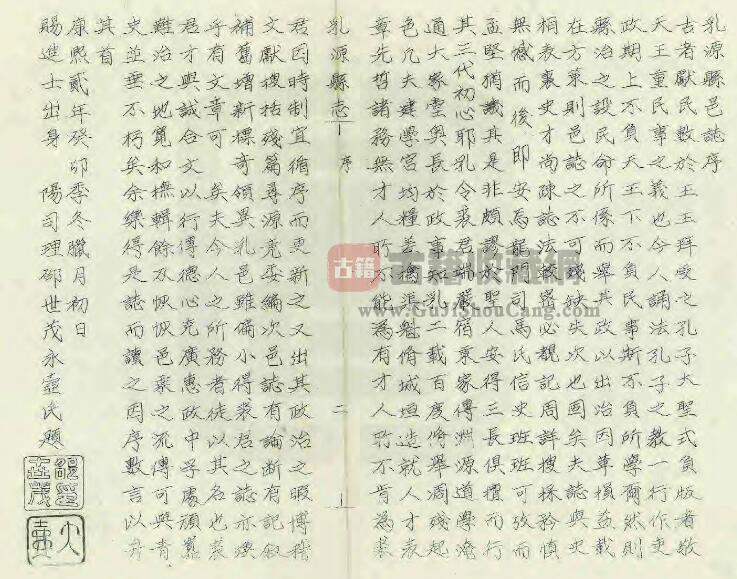 乳源縣邑誌序
古者獻民數於王王拜受之孔子大聖式負版者敬
天王重民事之義也今人誦法孔子之教一行作吏
政期上不負天王下不負民事斯不負所學爾然則
縣治之設民命所係而舉其政以出治因革損益載
在方策則邑誌之不可殘缺失次也固矣夫誌與史
相表裏史才尚疎誌法較密必覩記周詳搜採矜慎
無憾而後即安焉龍門司馬氏信史班班可攷而
孟堅猶譏其是非頗謬於聖人安得三長俱擅而行
其三代初心耶乳令裘君端嚴宿京家傳淵源道學淹
通大家堂奧長於政事知乳二載百度脩舉凋殘起
色凡夫建學宮均糧差擒渠魁脩城垣造就人才表
章先哲諸務無才人所不能為有才人所不肯為裘
乳源縣志 序 二
君因時制宜循序而更新之又出其政治之暇博稽
文獻搜括殘篇尋源竟委編次邑誌有論斷有記敘
補舊增新標奇領異乳邑雖備小得裘君之誌亦渙
乎有文章可矣夫今人之所務者徒以其名也裘
君才與誠合文以行傳德心克廣惠政中孚處頑嚚
難治之地寬和撫輯餘及恢恢邑乘之流傳可與青
史並垂不朽矣余樂得是誌而讀之因序數言以弁
其首
康熙貳年癸卯季冬臘月初日
賜進士出身 陽司理邵世茂永壺氏題
古籍收藏網
www.GuJiShouCang.com